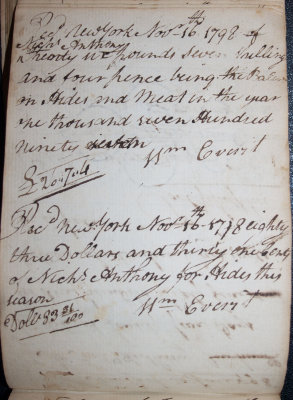 Recd New York Novr 16th 1798 of
Nichs Anthony
pounds Seven Shillings
and four pence being the
on Hides and Meat in the year
one thousand seven Hundred
Ninety
Wm Everit
£20..7..4
Recd New York Novr 16th 1798 eighty
three Dollars and thirty one Cents
of Nichs Anthony for Hides this
season
Wm Everit
Dolls 83 31/100